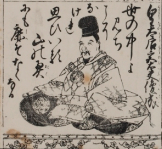 皇太后宮大夫俊成
世の中よ
みちこそ
なけれ
思ひ入
山の奥
にも
鹿そなくなる